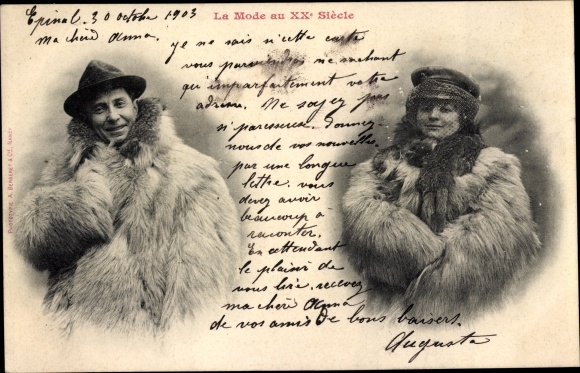 La Mode au XXe Siècle
Epinal. 30 octobre 1903
ma chère Anna.
je ne sais si cette carte
vous parviendra ne sachant
qu'imparfaitement votre
adresse. Ne soyez pas
si paresseuse. Donnez-
nous de vos nouvelles
par une longue
lettre. vous
devez avoir
beaucoup à
raconter.
En attendant
le plaisir de
vous lire, recevez
ma chère Anna
de vos amis de bons baisers.
Augusta
Phototypie A. Bergeret & Cie, Nancy